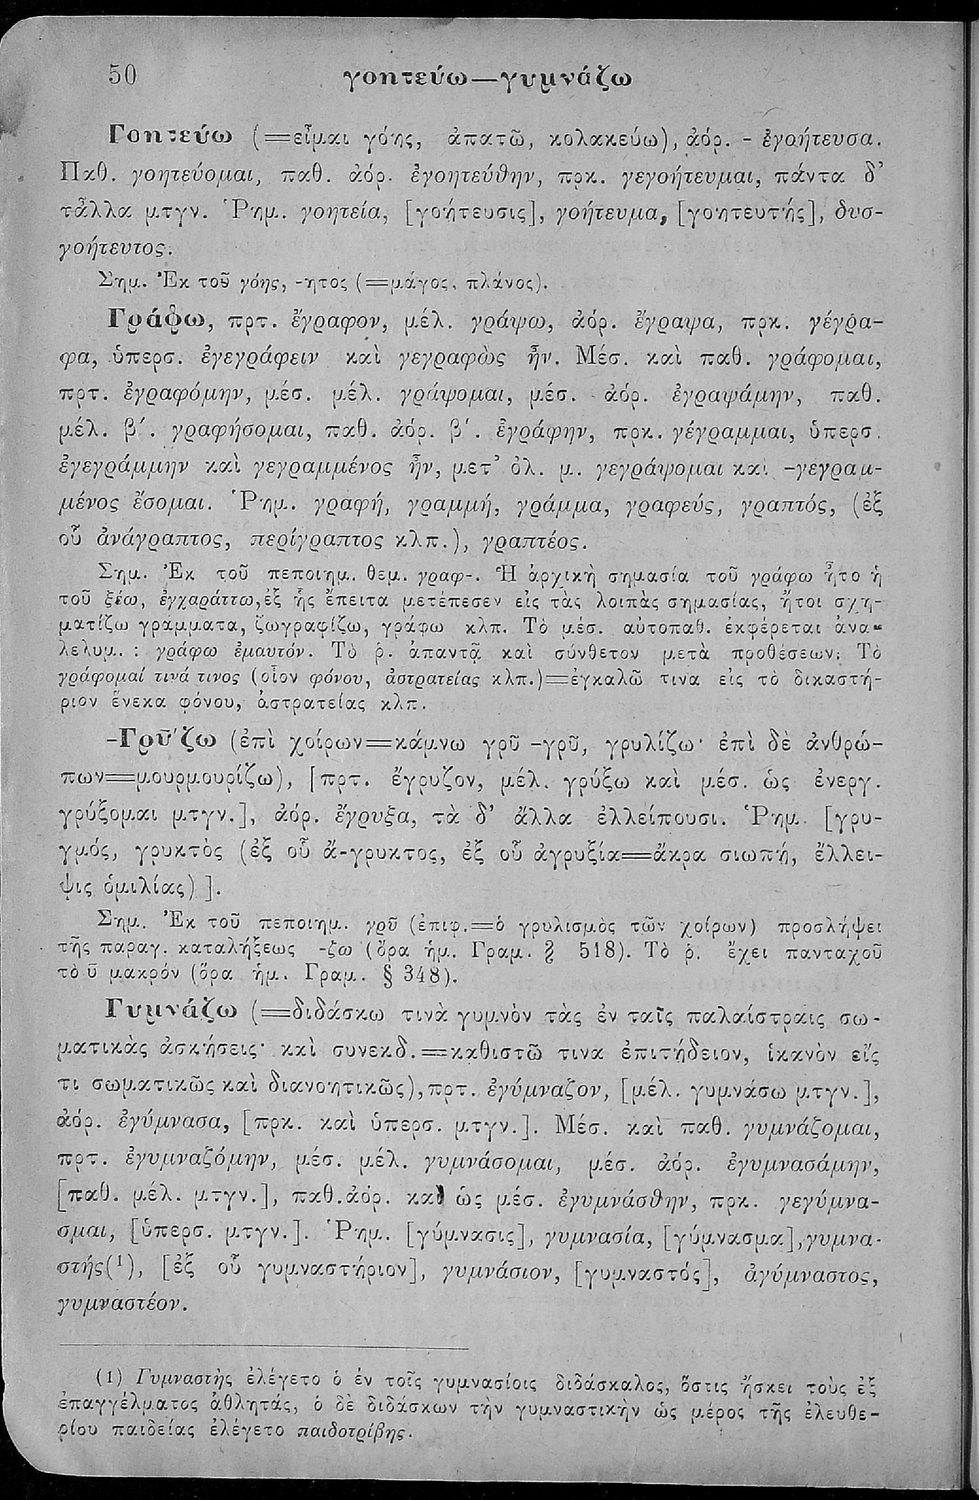 50
γοητεύω—γυμνάζω
Γοητεύω (=εἶμαι γόης, ἀπατῶ, κολακεύω), ἀόρ. - ἐγοήτευσα.
Παθ. γοητεύομαι, παθ. ἀόρ. ἐγοητεύθην, πρκ. γεγοήτευμαι, πάντα δ’
τἆλλα μτγν. Ῥημ. γοητεία, [γοήτευσις], γοήτευμα, [γοητευτής], δυσ-
γοήτευτος.
Σημ. Ἐκ τοῦ γόης, -ητος (=μάγος, πλάνος).
Γράφω, πρτ. ἔγραφον, μέλ. γράψω, ἀόρ. ἔγραψα, πρκ. γέγρα-
φα, ὑπερσ. ἐγεγράφειν καὶ γεγραφὼς ἦν. Μέσ. καὶ παθ. γράφομαι,
πρτ. ἐγραφόμην, μέσ. μέλ. γράψομαι, μέσ. ἀόρ. ἐγραψάμην, παθ.
μέλ. β΄. γραφήσομαι, παθ. ἀόρ. β΄. ἐγράφην, πρκ. γέγραμμαι, ὑπερσ.
ἐγεγράμμην καὶ γεγραμμένος ἦν, μετ’ ὀλ. μ. γεγράψομαι καὶ -γεγραμ-
μένος ἔσομαι. Ῥημ. γραφή, γραμμή, γράμμα, γραφεύς, γραπτός, (ἐξ
οὗ ἀνάγραπτος, περίγραπτος κλπ.), γραπτέος.
Σημ. Ἐκ τοῦ πεποιημ. θεμ. γραφ-. Ἡ ἀρχικὴ σημασία τοῦ γράφω ἦτο ἡ
τοῦ ξέω, ἐγχαράττω, ἐξ ἧς ἔπειτα μετέπεσεν εἰς τὰς λοιπὰς σημασίας, ἤτοι σχη-
ματίζω γράμματα, ζωγραφίζω, γράφω κλπ. Τὸ μέσ. αὐτοπαθ. ἐκφέρεται ἀνα-
λελυμ. : γράφω ἐμαυτόν. Τὸ ῥ. ἀπαντᾷ καὶ σύνθετον μετὰ προθέσεων. Τὸ
γράφομαί τινά τινος (οἷον φόνου, ἀστρατείας κλπ.)=ἐγκαλῶ τινα εἰς τὸ δικαστή-
ριον ἕνεκα φόνου, ἀστρατείας κλπ.
-Γρύζω (ἐπὶ χοίρων=κάμνω γρῦ -γρῦ, γρυλίζω· ἐπὶ δὲ ἀνθρώ-
πων=μουρμουρίζω), [πρτ. ἔγρυζον, μέλ. γρύξω καὶ μέσ. ὡς ἐνεργ.
γρύξομαι μτγν.], ἀόρ. ἔγρυξα, τὰ δ’ ἄλλα ἐλλείπουσι. Ῥημ. [γρυ-
γμός, γρυκτὸς (ἐξ οὗ ἄ-γρυκτος, ἐξ οὗ ἀγρυξία=ἄκρα σιωπή, ἔλλει-
ψις ὁμιλίας) ].
Σημ. Ἐκ τοῦ πεποιημ. γρῦ (ἐπιφ.=ὁ γρυλισμὸς τῶν χοίρων) προσλήψει
τῆς παραγ. καταλήξεως -ζω (ὅρα ἡμ. Γραμ. § 518). Τὸ ῥ. ἔχει πανταχοῦ
τὸ ῡ μακρόν (ὅρα ἡμ. Γραμ. § 348).
Γυμνάζω (=διδάσκω τινὰ γυμνὸν τὰς ἐν ταῖς παλαίστραις σω-
ματικὰς ἀσκήσεις· καὶ συνεκδ.=καθιστῶ τινα ἐπιτήδειον, ἱκανὸν εἴς
τι σωματικῶς καὶ διανοητικῶς), πρτ. ἐγύμναζον, [μέλ. γυμνάσω μτγν.],
ἀόρ. ἐγύμνασα, [πρκ. καὶ ὑπερσ. μτγν.]. Μέσ. καὶ παθ. γυμνάζομαι,
πρτ. ἐγυμναζόμην, μέσ. μέλ. γυμνάσομαι, μέσ. ἀόρ. ἐγυμνασάμην,
[παθ. μέλ. μτγν.], παθ. ἀόρ. καὶ ὡς μέσ. ἐγυμνάσθην, πρκ. γεγύμνα-
σμαι, [ὑπερσ. μτγν.]. Ῥημ. [γύμνασις], γυμνασία, [γύμνασμα], γυμνα-
στής(1), [ἐξ οὗ γυμναστήριον], γυμνάσιον, [γυμναστός], ἀγύμναστος,
γυμναστέον.
(1) Γυμναστὴς ἐλέγετο ὁ ἐν τοῖς γυμνασίοις διδάσκαλος, ὅστις ἤσκει τοὺς ἐξ
ἐπαγγέλματος ἀθλητάς, ὁ δὲ διδάσκων τὴν γυμναστικὴν ὡς μέρος τῆς ἐλευθε-
ρίου παιδείας ἐλέγετο παιδοτρίβης.